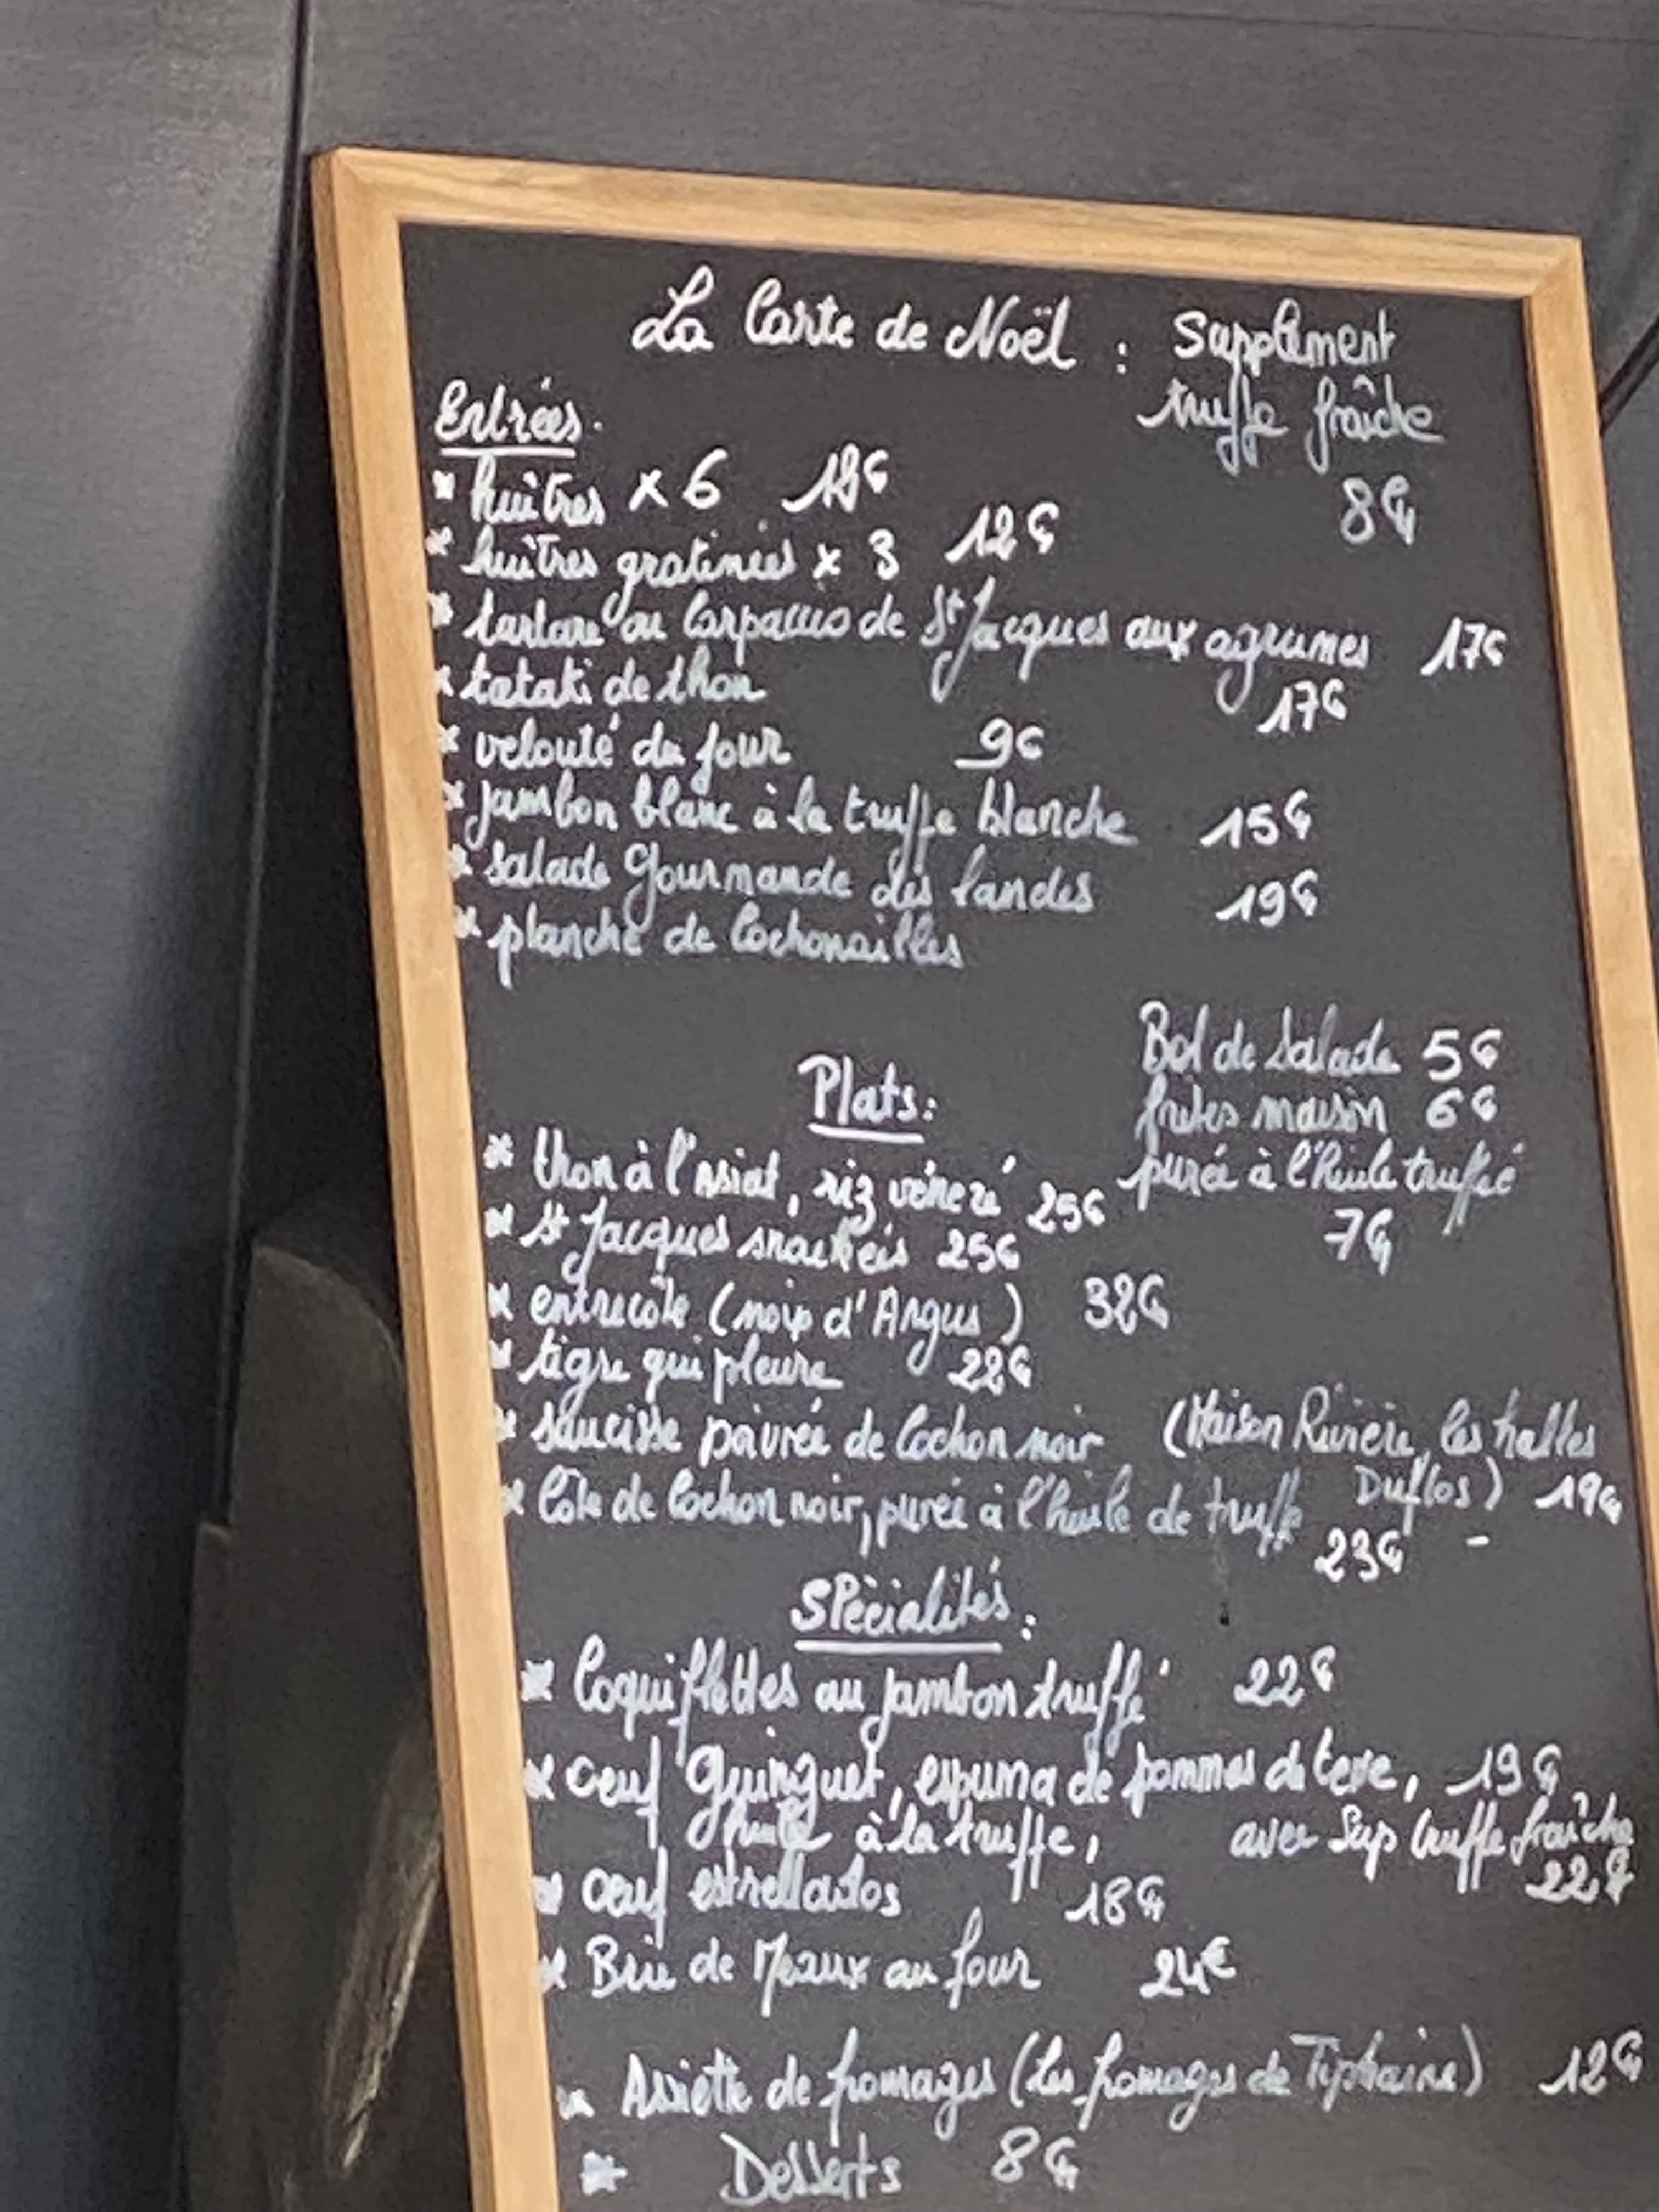 La Carte de Noël : Supplément
truffe fraîche
8€
Entrées.
* huîtres x 6
* huîtres gratinées x 3 12€
* tartare ou Carpaccio de St Jacques aux agrumes 17€
* tataki de thon 17€
* velouté du jour 9€
* jambon blanc à la truffe blanche 15€
* salade Gourmande des landes 19€
* planche de Cochonailles
Bol de Salade 5€
frites maison 6€
purée à l'huile truffé
7€
Plats:
* thon à l'Asiat, riz vénéré 25€
* St Jacques snackéés 25€
* entrecôte (noix d'Angus) 32€
* tigre qui pleure 22€
* saucisse poivrée de Cochon noir (Maison Rivière, les halles
Duflos) 19€
* Côte de Cochon noir, purée à l'huile de truffe
23€ -
Spécialités:
* Coquillettes au jambon truffé 22€
* oeuf Guinguet, espuma de pommes de terre, 19€
huile à la truffe, avec Sup truffe fraîche
22€
* oeuf estrellados 18€
* Brie de Meaux au four 24€
* Assiette de fromages (les fromages de Tiphaine) 12€
* Desserts 8€